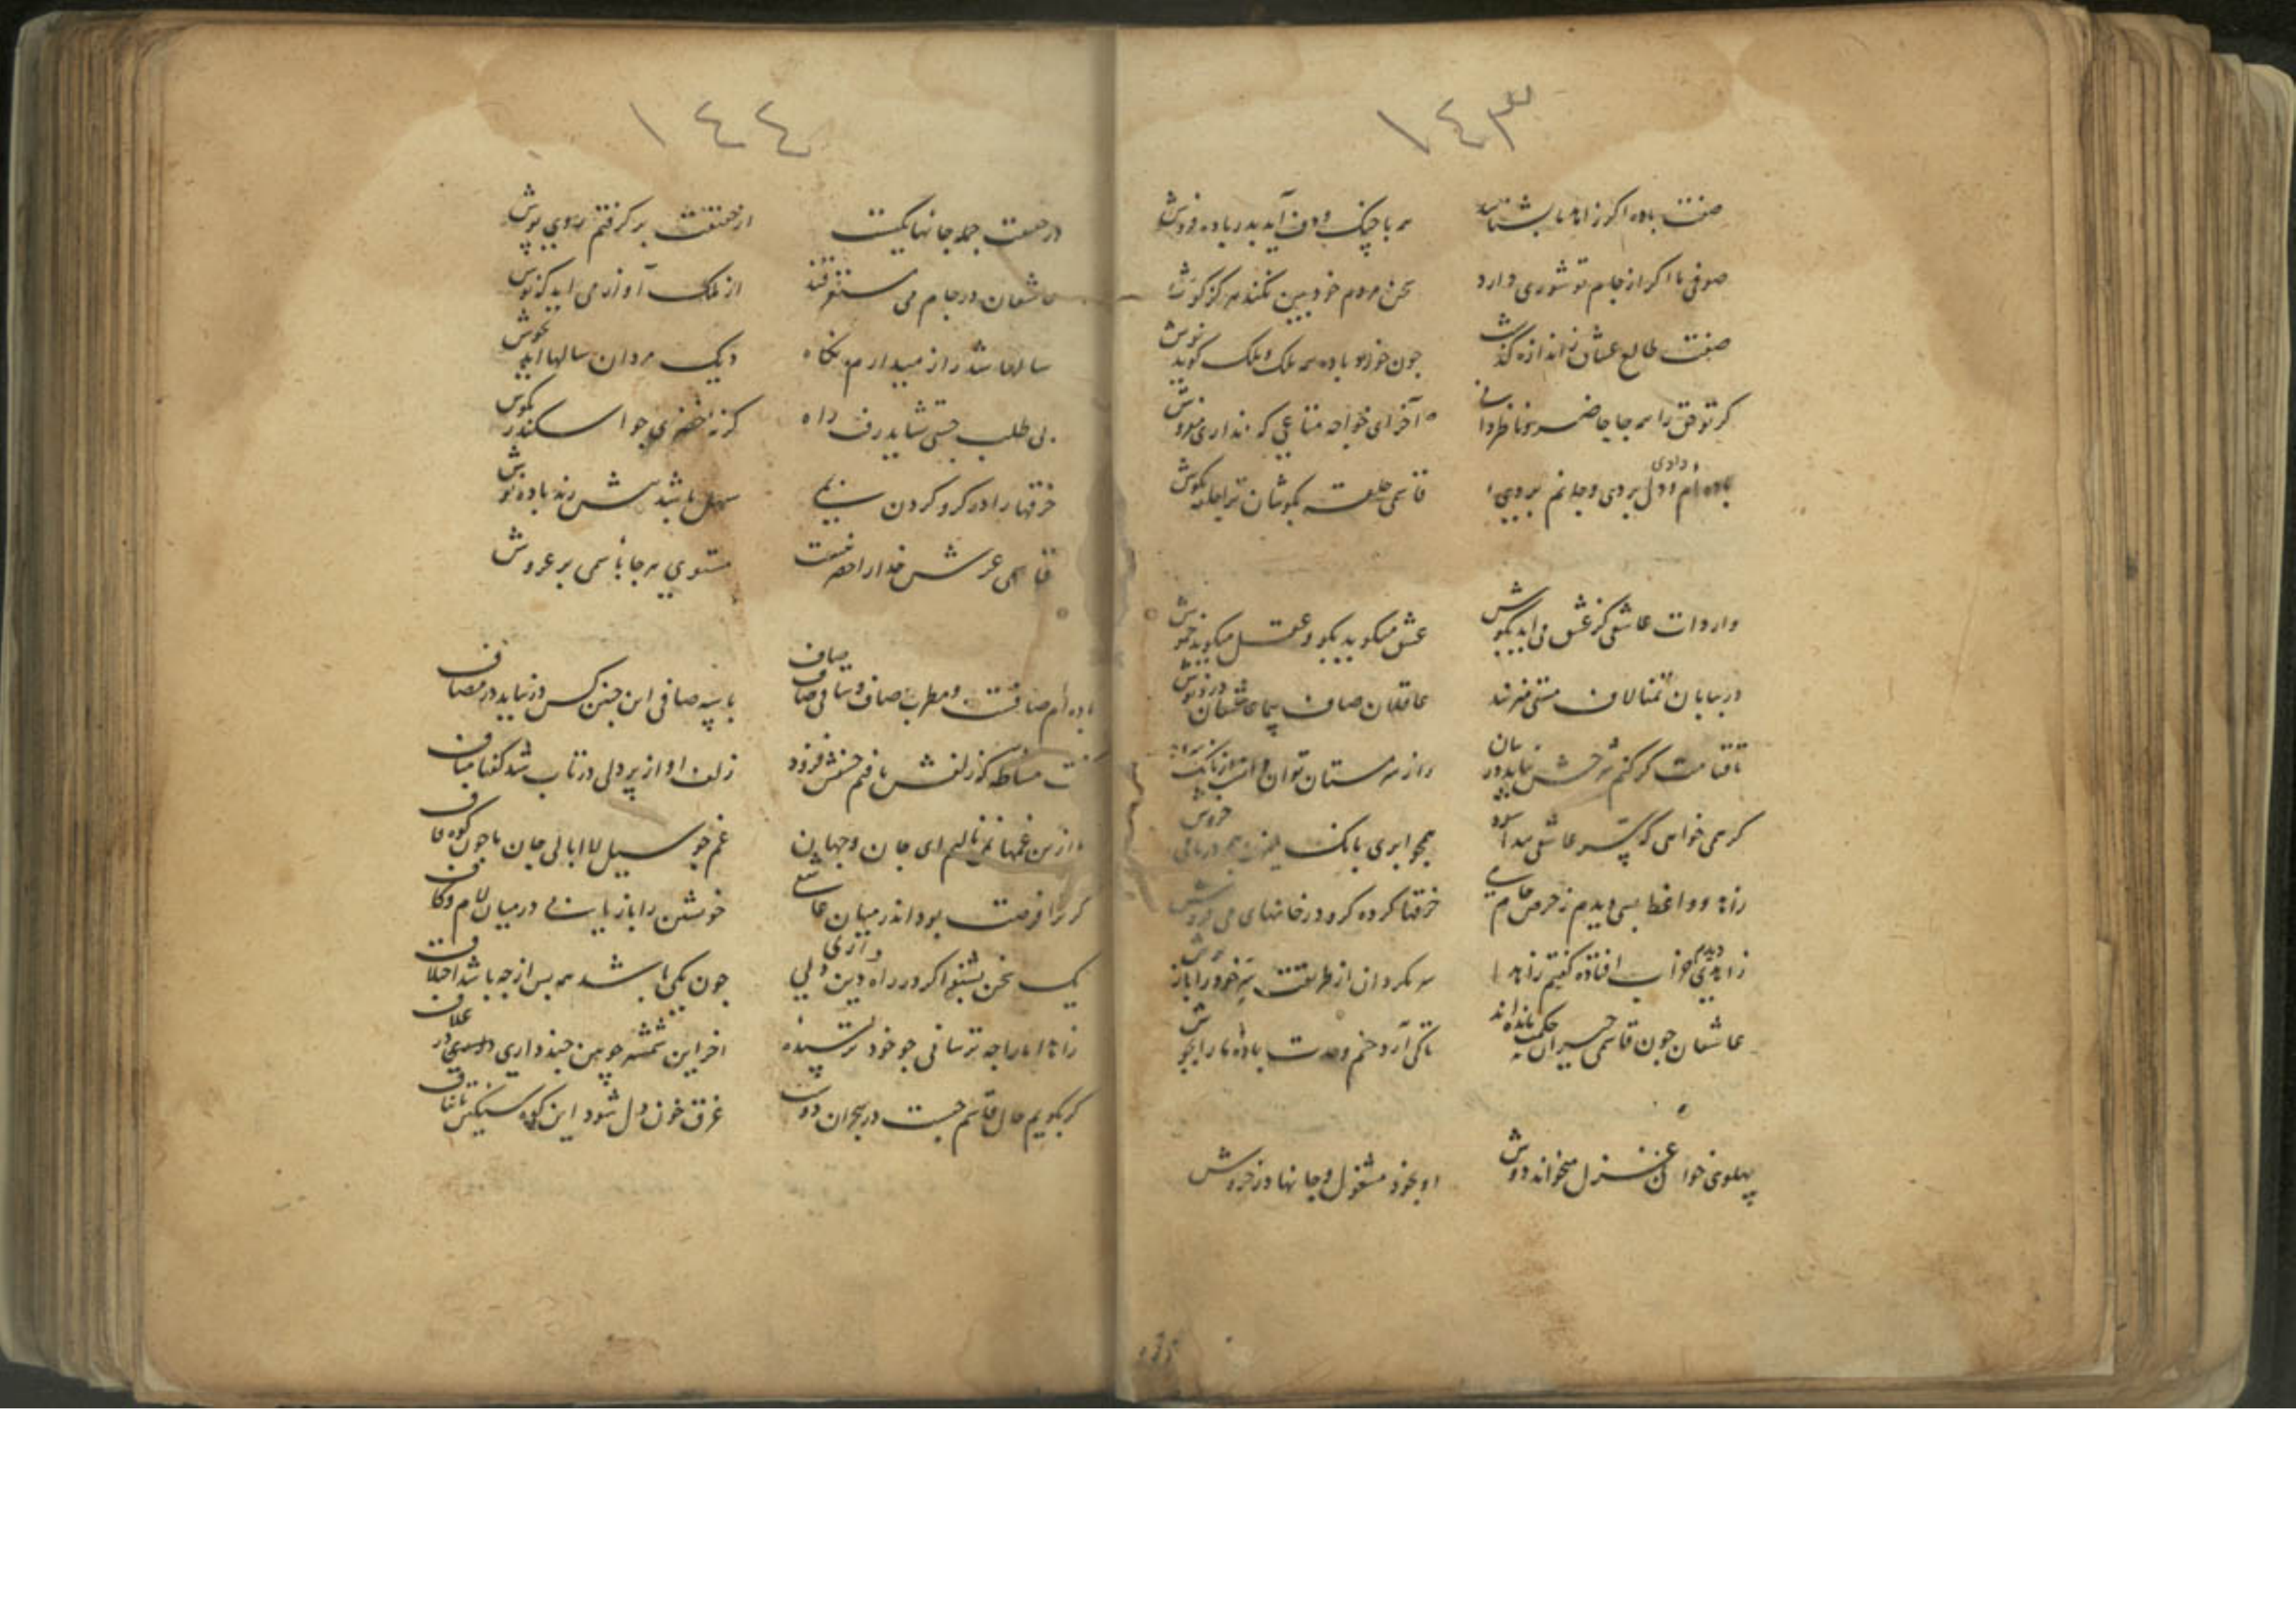 ١٤٣
صفت باده اگر زاهد ما بشناسد
با چنک و دف آید بدر باده فروش
صوفی ما اگر از جام تو شوری دارد
سخن مردم خود بین نکند هرگز گوش
صفت طالع عشاق ز اندازه گذشت
چون خورد باده همه ملک و ملک گوید نوش
گر تو حق را همه جا حاضر و ناظر دانی
آخر ای خواجه متاعی که نداری مفروش
باده ام دادی و دل بردی و جانم بردی
قاسمی حلقه بگوشان ترا حلقه بگوش
واردات عاشقی کز عشق می آید بگوش
عشق میگوید بگو و عقل میگوید خموش
در بیابان تمنا لاف مستی میزنند
عاقلان صاف پیما عاشقان درد نوش
تا قیامت گر کنم شرحش نیاید در بیان
راز مستان توان دانست از بانک
گر همی خواهی که سر عاشقی پیدا شود
همچو ابری بانک میزن همچو دریا می خروش
زاهد و واعظ بسی دیدم ز حرص جام می
خرقها کرده گرو در خانهای می فروش
زاهدی دیدم خراب افتاده گفتم زاهدا
سر مگردان از طریقت خود را باز پوش
عاشقان چون قاسمی حیران حکمت مانده اند
تا کی آرد خم وحدت باده ما را بجوش
پهلوی خوان غزل میخواند دوش
او بخود مشغول و جانها در خروش
١٤٤
در حقیقت جمله جانها یکیست
از حقیقت بر گرفتم روی پوش
عاشقان در جام می مستغرقند
از فلک آواز می آید که نوش
سالها شد راز میدارم نگاه
دیک مردان سالها آید بجوش
بی طلب جستی نشاید رفت راه
گر نه خضری چو اسکندر بکوش
خرقها را در گرو کردن بمی
سهل باشد پیش رند باده نوش
قاسمی عرش خدا را حصر نیست
مستوی هر جا شناسی بر عروش
باده ام صافست و مطرب صاف و ساقی صاف صاف
با سپه صافی این چنین کس در نیاید در مصاف
مشاطه کز زلفش یافتم حسنش فزود
زلف او از پر دلی در تاب شد گفتا مباف
ما ازین غمها نمی نالیم ای جان و جهان
غم چو سیل لاابالی جان ما چون کوه قاف
گر ترا فرصت بود اندر میان عاشقی
خویشتن را باز یابی در میان لام و کاف
یک سخن بشنو اگر در راه دین داری دلی
چون یکی باشد همه پس از چه باشد اختلاف
زاهدا ما را چه ترسانی چو خود ترسیده
آخر این شمشیر چوبین چند داری در غلاف
گر بگویم حال قاسم چیست در هجران دوست
غرق خون دل شود این کوه سنگین تا بناف